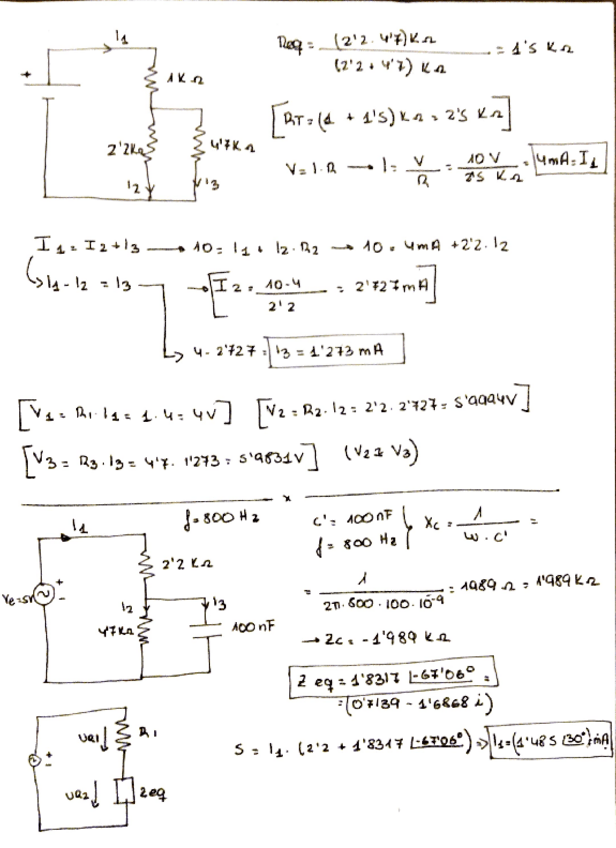 I1
+
1K Ω
2'2KΩ
4'7K Ω
I2
I3
Req = (2'2 · 4'7)KΩ / (2'2 + 4'7) KΩ = 1'5 K Ω
[RT = (1 + 1'5) KΩ = 2'5 KΩ]
V = I · R → I = V / R = 10 V / 2'5 KΩ = 4mA = I1
I1 = I2 + I3 → 10 = I1 + I2 · R2 → 10 = 4mA + 2'2 · I2
↳ I1 - I2 = I3
→ [I2 = 10-4 / 2'2 = 2'727mA]
↳ 4 - 2'727 = I3 = 1'273 mA
[V1 = R1 · I1 = 1 · 4 = 4V] [V2 = R2 · I2 = 2'2 · 2'727 = 5'9994V]
[V3 = R3 · I3 = 4'7 · 1'273 = 5'9831V] (V2 ≈ V3)
x
I1
f = 800 Hz
Ve=5V
+
-
2'2 KΩ
I2
I3
4'7KΩ
100 nF
C' = 100 nF
f = 800 Hz
Xc = 1 / W · C' =
= 1 / 2π · 800 · 100 · 10⁻⁹ = 1989 Ω = 1'989 KΩ
→ Zc = -1'989 KΩ
Z eq = 1'8317 |-67'06° =
= (0'7139 - 1'6868 i)
5 = I1 · (2'2 + 1'8317 |-67'06°) ⇒ I1 = (1'485 |30°) mA
+
-
UR1 ↓
R1
UR2 ↓
Zeq